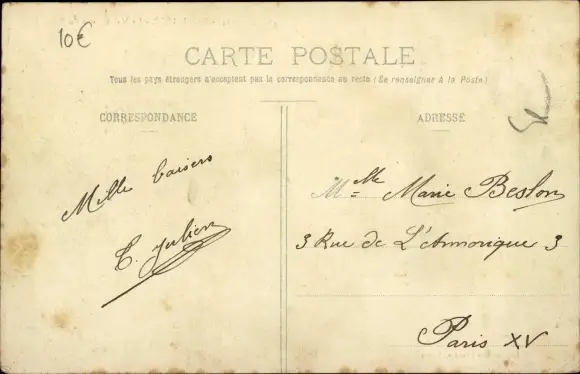 10€
CARTE POSTALE
Tous les pays étrangers n'acceptent pas la correspondance au recto (Se renseigner à la Poste)
CORRESPONDANCE
ADRESSE
Mille baisers
Mlle Marie Beslon
3 Rue de L'Armorique 3
Paris XV